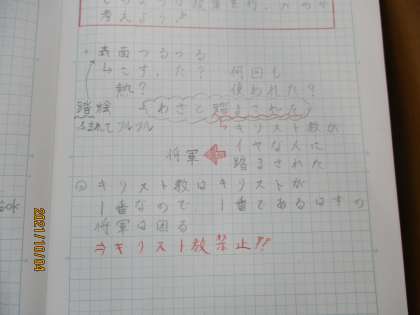 考えよう
・表面つるつる
↳こす、た? 何回も
熱? 使われた?
踏絵 わざと踏まされた
ふまれてツルツル
↳キリスト教が
将軍 イヤな人に
踏まされた
キリスト教はキリストが
1番なので 1番であるはずの
将軍は困る
⇒キリスト教禁止!!
2021/10/04